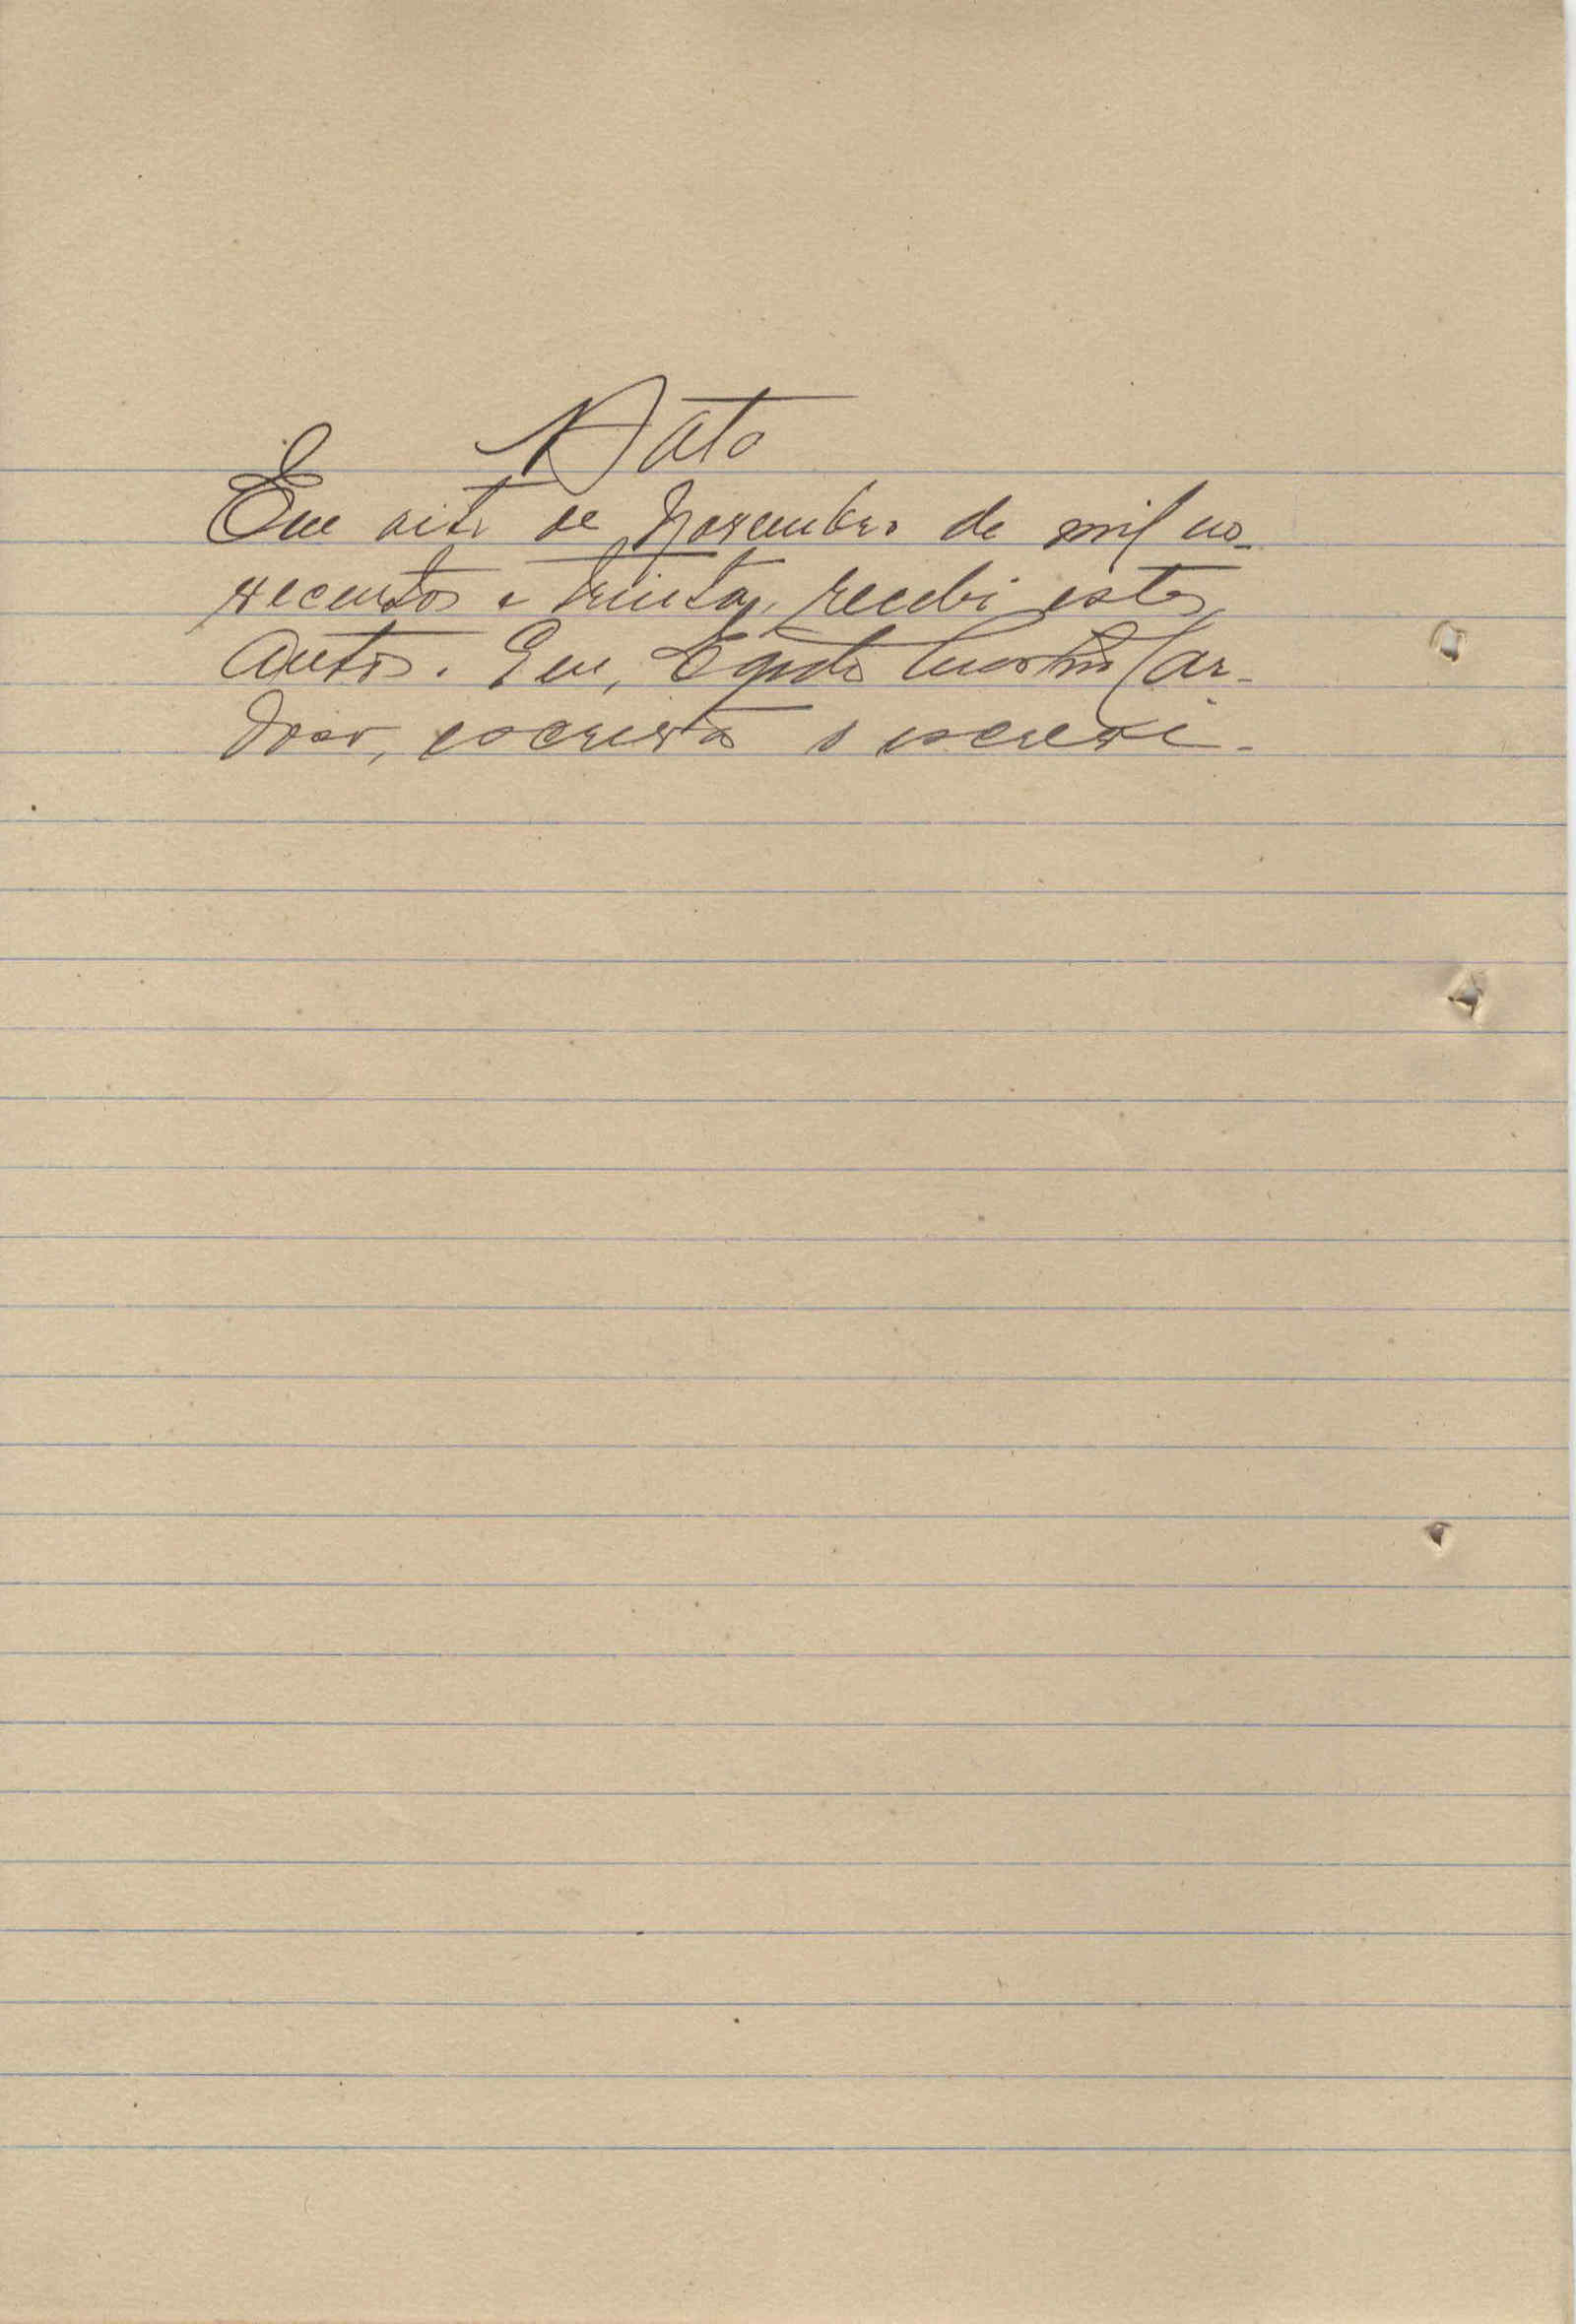 Data
Em oito de Novembro de mil no-
vecentos e trinta, recebi estes
autos. Eu, Egydio Car-
doso, escrivão o escrevi.